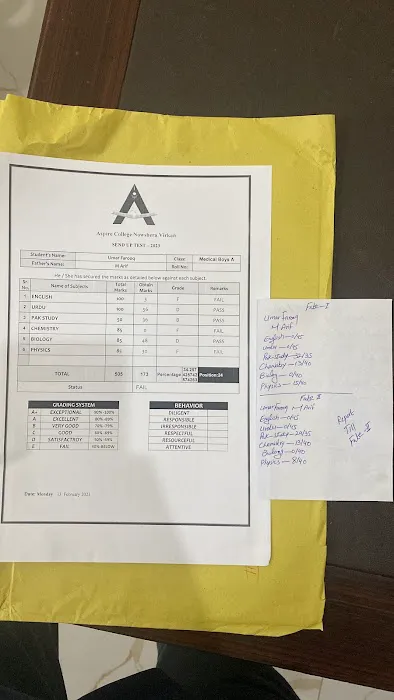 Aspire College Nowshera Virkan
SEND UP TEST - 2023
Student's Name: Umar Farooq Class Medical Boys A
Father's Name: M Arif Roll No:
He / She has secured the marks as detailed below against each subject.
Sr. No. Name of Subjects Total Marks Obtain Marks Grade Remarks
1 ENGLISH 100 F FAIL
2 URDU 100 56 D PASS
3 PAK STUDY 50 D PASS
4 CHEMISTRY 85 F FAIL
5 BIOLOGY 85 D PASS
6 PHYSICS 85 F FAIL
TOTAL 505 173 Percentage Position:24
Status FAIL
GRADING SYSTEM
A+ EXCEPTIONAL 80%-100%
A EXCELLENT
B VERY GOOD 70%-79%
C GOOD 60%-69%
D SATISFACTROY 50%-59%
E FAIL
BEHAVIOR
DILIGENT
RESPONSIBLE
IRRESPONSIBLE
RESPECTFUL
RESOURCEFUL
ATTENTIVE
Date: Monday February 2023
Umar Farooq
M Arif
English — 0/45
Urdu — 0/45
Pak-study —
Chemistry — 13/40
Biology — 0/40
Physics — 15/40
Umar Farooq M Arif
English — 0/45
Urdu — 0/45
Pak-study — 20/35
Chemistry — 13/40
Biology — 0/40
Physics — 8/40
Report
Till